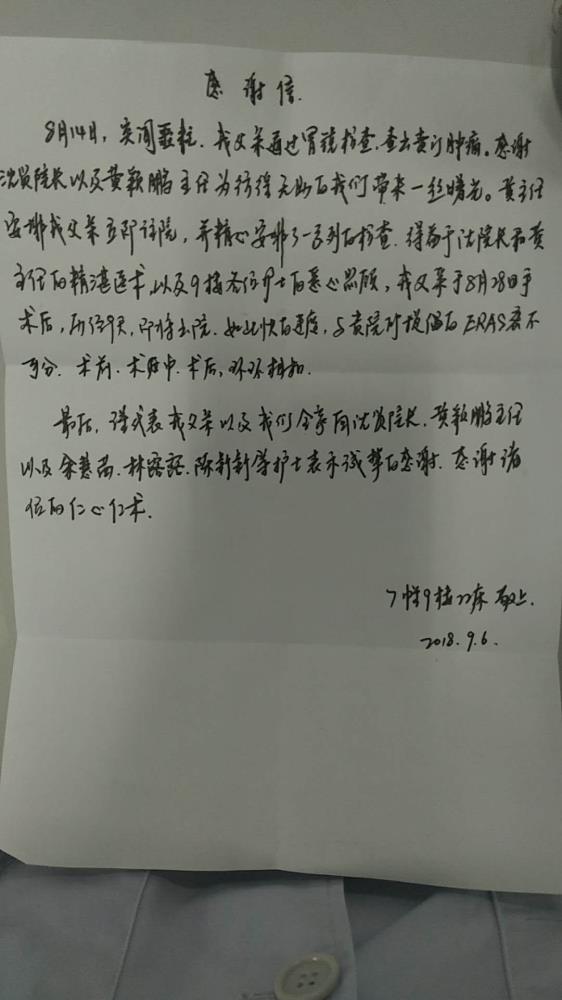 感谢信.
8月14日, 突闻噩耗. 我父亲通过胃镜检查, 查出贲门肿瘤。感谢
沈贤院长以及黄颖鹏主任为彷徨无助的我们带来一丝曙光。黄主任
安排我父亲立即住院, 并精心安排了一系列的检查. 得益于沈院长和黄
主任的精湛医术, 以及9楼各位护士的悉心照顾, 我父亲于8月28日手
术后, 历经9天, 即将出院. 如此快的速度, 与贵院所提倡的ERAS密不
可分. 术前、术中、术后, 环环相扣.
最后, 谨代表我父亲以及我们全家向沈贤院长、黄颖鹏主任
以及余慧 林 陈新新等护士表示诚挚的感谢. 感谢诸
位的仁心仁术.
7幢9楼22床 敬上.
2018.9.6.